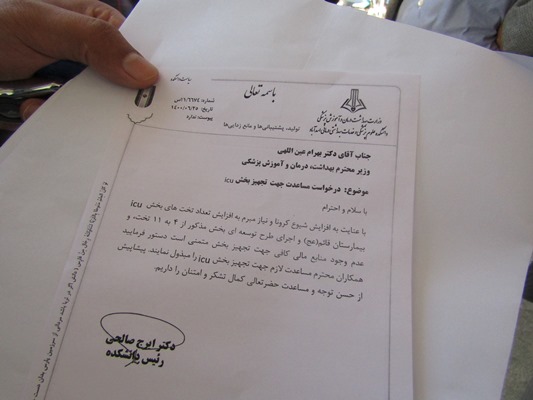 باسمه تعالی
ریاست دانشکده
وزارت بهداشت، درمان و آموزش پزشکی
دانشکده علوم پزشکی و خدمات بهداشتی درمانی اسدآباد
شماره: ۱/۶۶۷۴۰/ص
تاریخ: ۱۴۰۰/۰۶/۲۷
پیوست: ندارد
تولید، پشتیبانی‌ها و مانع زدایی‌ها
جناب آقای دکتر بهرام عین اللهی
وزیر محترم بهداشت، درمان و آموزش پزشکی
موضوع: درخواست مساعدت جهت تجهیز بخش icu
با سلام و احترام
با عنایت به افزایش شیوع کرونا و نیاز مبرم به افزایش تعداد تخت های بخش icu
بیمارستان قائم(عج) و اجرای طرح توسعه ای بخش مذکور از ۴ به ۱۱ تخت، و
عدم وجود منابع مالی کافی جهت تجهیز بخش متمنی است دستور فرمایید
همکاران محترم مساعدت لازم جهت تجهیز بخش icu را مبذول نمایند. پیشاپیش
از حسن توجه و مساعدت حضرتعالی کمال تشکر و امتنان را داریم.
دکتر ایرج صالحی
رئیس دانشکده